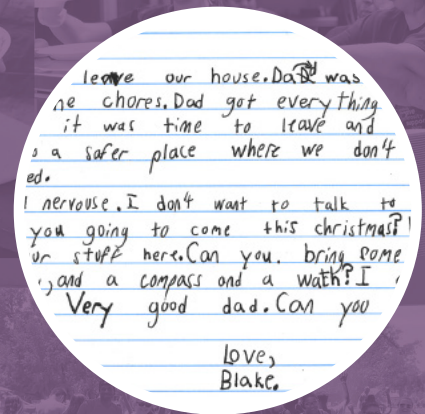 leave our house. Dad was
ne chores. Dad got everything
it was time to leave and
s a safer place where we don't
ed.
I nervouse. I don't want to talk to
you going to come this christmas?
ur stuff here. Can you bring some
, and a compass and a wath? I
Very good dad. Can you
Love,
Blake.